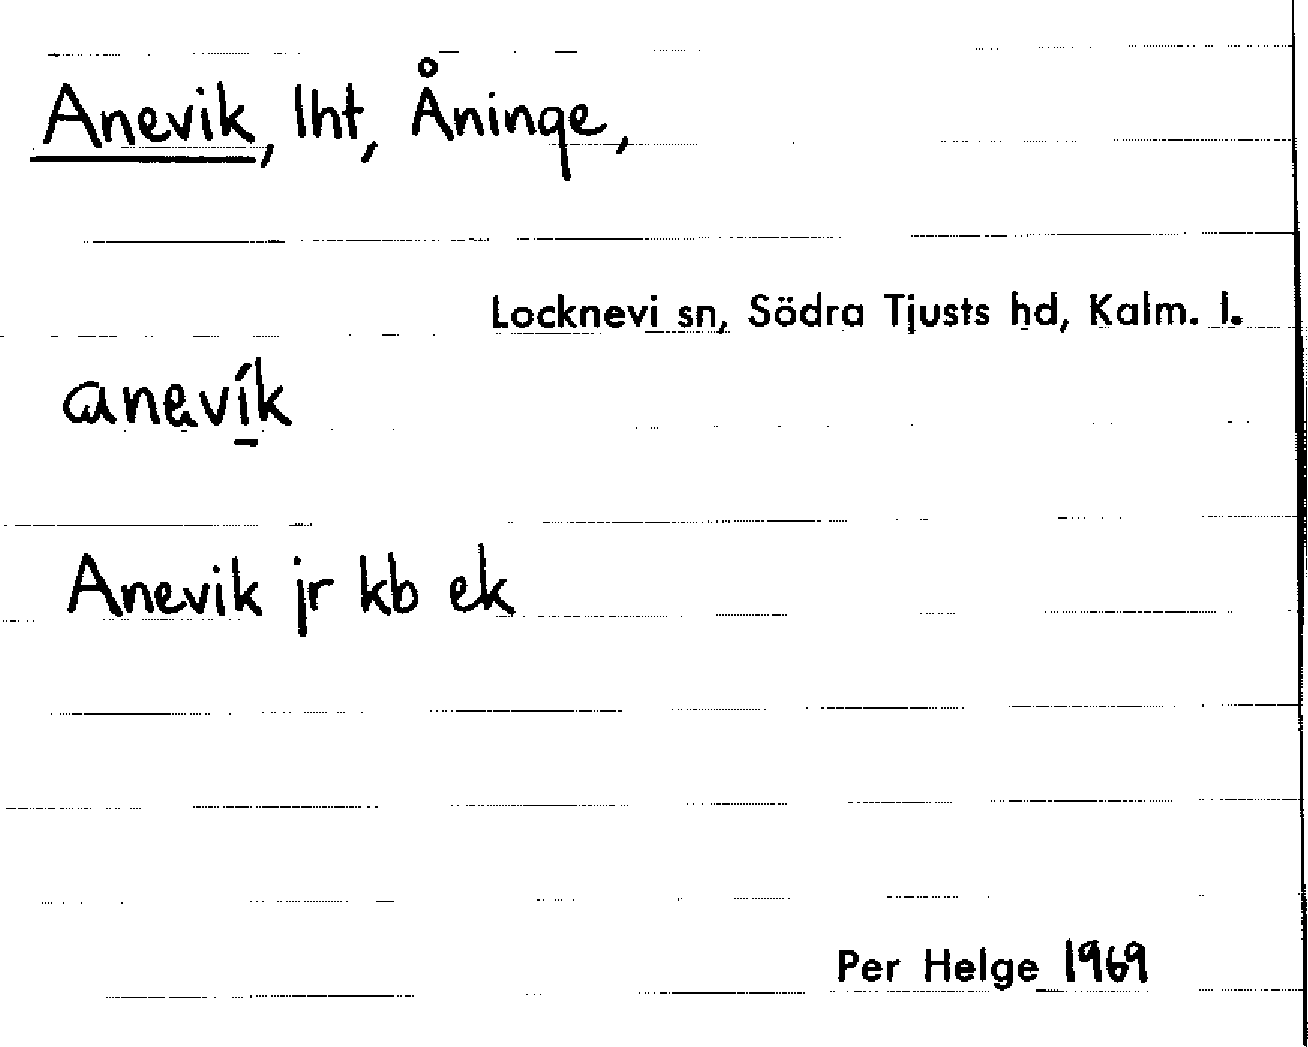 Anevik, lht, Åninge,
Locknevi sn, Södra Tjusts hd, Kalm. l.
aneví̱k
Anevik jr kb ek
Per Helge 1969